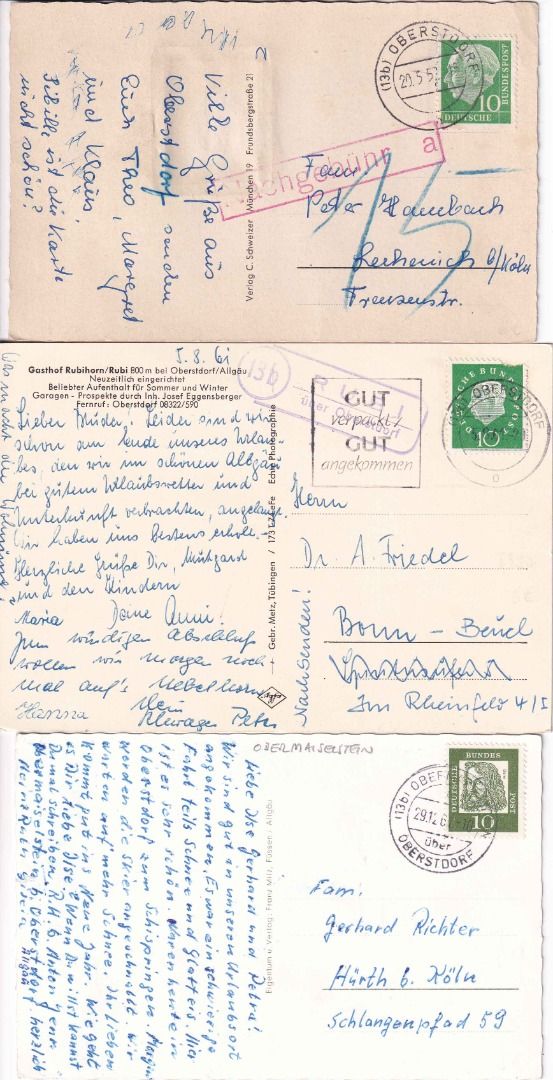 Viele Grüße aus
Oberstdorf senden
Euch Theo, Margret
und Klaus!
Sibille ist die Karte
nicht schön?
Verlag C. Schweizer München 19 Frundsbergstraße 21
(13b) OBERSTDORF
10
DEUTSCHE
BUNDESPOST
Nachgebühr a
15
Peter Hambach
Lechenich b/Köln
Frenzenstr.
5.8.61
Gasthof Rubihorn/Rubi 800 m bei Oberstdorf/Allgäu
Neuzeitlich eingerichtet
Beliebter Aufenthalt für Sommer und Winter
Garagen - Prospekte durch Inh. Josef Eggensberger
Fernruf: Oberstdorf 08322/590
Leider sind wir
schon am Ende unseres Urlau-
bes, den wir im schönen Allgäu
bei gutem Urlaubswetter und
Unterkunft verbrachten, angelangt.
Wir haben uns bestens erholt.
Herzliche Grüße Dir,
und den Kindern
Maria Deine Anni.
Zum würdigen Abschluß
wollen wir morgen noch-
mal auf's Nebelhorn
Hanna
Peter
Gebr. Metz, Tübingen
Echte Photographie
(13b)
über Oberstdorf
GUT
verpackt /
GUT
angekommen
DEUTSCHE BUNDESPOST
10
OBERSTDORF
Herrn
Dr. A. Friedel
Bonn - Beuel
Im Rheinfeld 4/I
Nachsenden!
OBERMAISELSTEIN
Liebe Ilse Gerhard und Petra!
Wir sind gut in unseren Urlaubsort
angekommen. Es war ein schwierige
Fahrt teils Schnee und Glatteis. Hier
ist es sehr schön. Waren heute in
Oberstdorf zum Schispringen. Morgen
werden die Skier angeschnallt. Wir
warten auf mehr Schnee. Ihr Lieben
kommt gut ins Neue Jahr. Wie geht
es Dir liebe Ilse? Wenn Du willst kannst
Du mal schreiben.
Obermaiselstein b. Oberstdorf
Allgäu
herzlich
Eigentum u. Verlag: Franz Milz, Füssen / Allgäu
(13b)
29.12.6
über
OBERSTDORF
DEUTSCHE
BUNDES
POST
10
Fam.
Gerhard Richter
Hürth b. Köln
Schlangenpfad 59